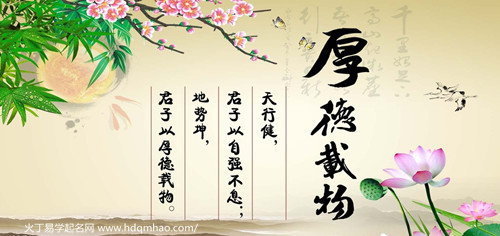 厚德載物
天行健，
君子以自强不息；
地势坤，
君子以厚德载物。
火丁易学起名网 www.hdqmhao.com/